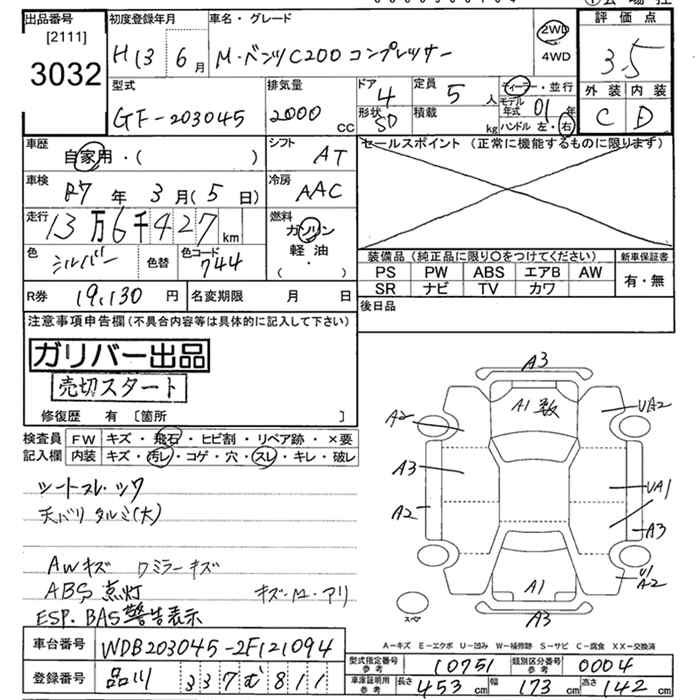 出品番号 初度登録年月 車名・グレード 評価点
[2111] H13年 6月 M・ベンツC200 コンプレッサー 2WD 4WD 3.5
3032 外装 内装
型式 排気量 ドア 4 定員 5人 ディーラー・並行
GF-203045 2000cc 形状 SD 積載 kg モデル年式 01年 C D
ハンドル 左・右
車歴 自家用・( ) シフト AT セールスポイント (正常に機能するものに限ります)
車検 R7年 3月(5日) 冷房 AAC
走行 13万6千427km 燃料 ガソリン
軽油
( ・ )
色 シルバー 色替 色コード 744 装備品 (純正品に限り○をつけてください) 新車保証書
PS PW ABS エアB AW 有・無
SR ナビ TV カワ
R券 19,130円 名変期限 月 日 後日品
注意事項申告欄(不具合内容等は具体的に記入して下さい)
ガリバー出品
売切スタート
修復歴 有 [箇所 ]
検査員 FW キズ・飛石・ヒビ割・リペア跡・×要
記入欄 内装 キズ・汚レ・コゲ・穴・スレ・キレ・破レ
シートスレ・シワ
天バリ タルミ(大)
AWキズ ワミラーキズ
ABS 点灯 キズ・凹・アリ
ESP. BAS警告表示
A3
A1数 UA2
A2
A3 UA1
A2 A3
A1 A2
A3
スペア
A-キズ E-エクボ U-凹み W-補修跡 S-サビ C-腐食 XX-交換済
車台番号 WDB203045-2F121094
型式指定番号 参考 10751 類別区分番号 参考 0004
登録番号 品川 337 む 811
車庫証明用 参考 長さ 453cm 幅 173cm 高さ 142cm